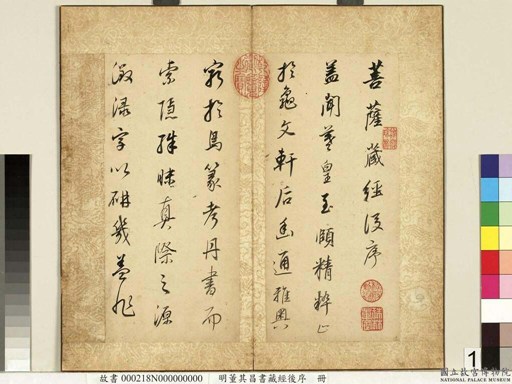 菩薩藏經後序
蓋聞羲皇至頤精粹止
於龜文軒后幽通雅奧
窮於鳥篆考丹書而
索隱殊昧真際之源
徵渌字以研幾蓋非
1
故書 000218N000000000 明董其昌書藏經後序 冊
國立故宮博物院
NATIONAL PALACE MUSEUM